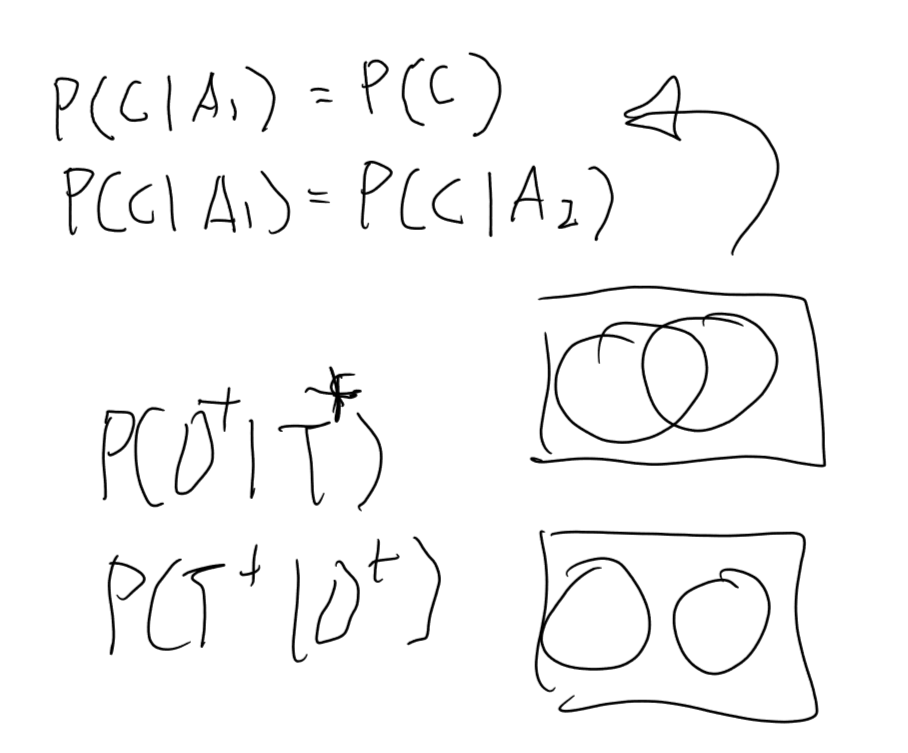 P(C|A₁) = P(C)
P(C|A₁) = P(C|A₂)
P(D⁺|T⁺)
P(T⁺|D⁺)